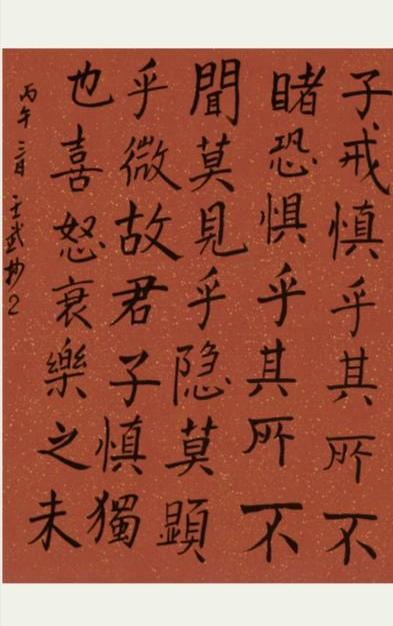 子戒慎乎其所不
睹恐惧乎其所不
聞莫見乎隐莫顕
乎微故君子慎獨
也喜怒哀樂之未
丙午 三月 王武抄2